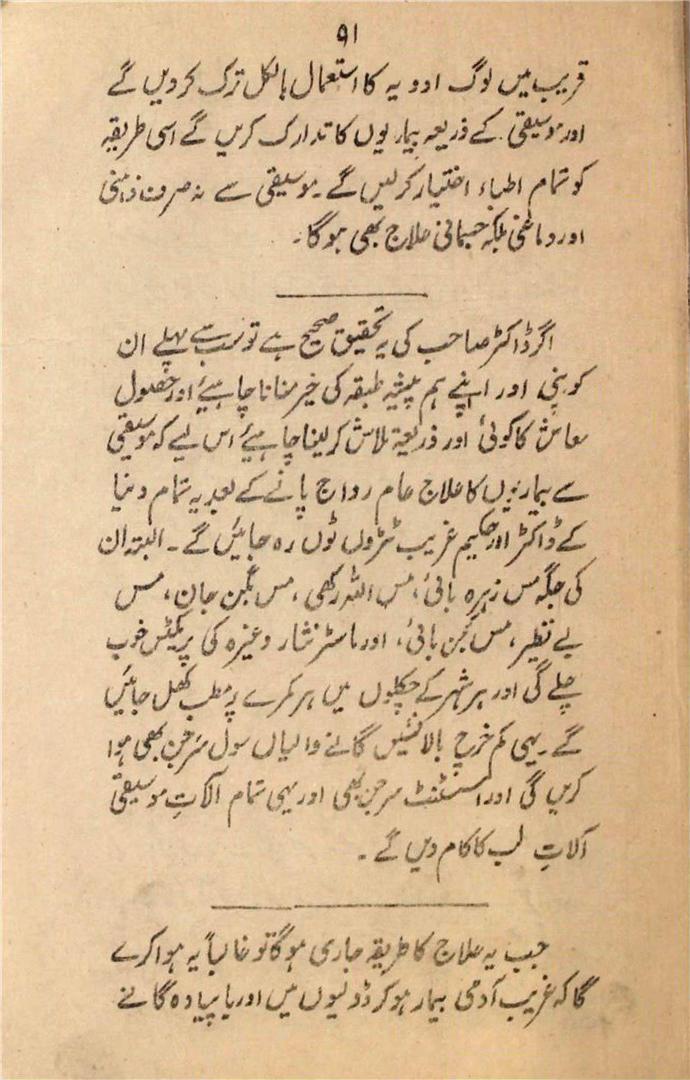 ۹۱
قریب میں لوگ ادویہ کا استعمال بالکل ترک کردیں گے
اور موسیقی کے ذریعہ بیماریوں کا تدارک کریں گے اسی طریقہ
کو تمام اطباء اختیار کرلیں گے۔ موسیقی سے نہ صرف ذہنی
اور دماغی بلکہ جسمانی علاج بھی ہوگا۔
اگر ڈاکٹر صاحب کی یہ تحقیق صحیح ہے تو سب سے پہلے ان
کو اپنی اور اپنے ہم پیشہ طبقہ کی خیر منانا چاہیئے اور حصول
معاش کا کوئی اور ذریعہ تلاش کرلینا چاہیئے اس لیے کہ موسیقی
سے بیماریوں کا علاج عام رواج پانے کے بعد یہ تمام دنیا
کے ڈاکٹر اور حکیم غریب ٹٹروں ٹوں رہ جائیں گے۔ البتہ ان
کی جگہ مس زہرہ بائی، مس اللہ رکھی، مس نگن جان، مس
بے نظیر، مس بائی، اور ماسٹر نثار وغیرہ کی پریکٹس خوب
چلے گی اور ہر شہر کے چکلوں میں ہر کمرے پر مطب کھل جائیں
گے۔ یہی کم خرچ بالا نشیں گانے والیاں سول سرجن بھی ہوا
کریں گی اور اسسٹنٹ سرجن بھی اور یہی تمام آلاتِ موسیقی
آلاتِ طب کا کام دیں گے۔
جب یہ علاج کا طریقہ جاری ہوگا تو غالباً یہ ہوا کرے
گا کہ غریب آدمی بیمار ہوکر ڈولیوں میں اور یا پیادہ گانے